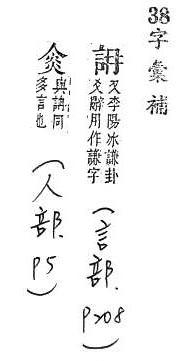 38字彙補
䛁
又李陽冰謙卦
爻辭用作謙字
(言部. P208)
與䛁同
多言也
(人部. P5)